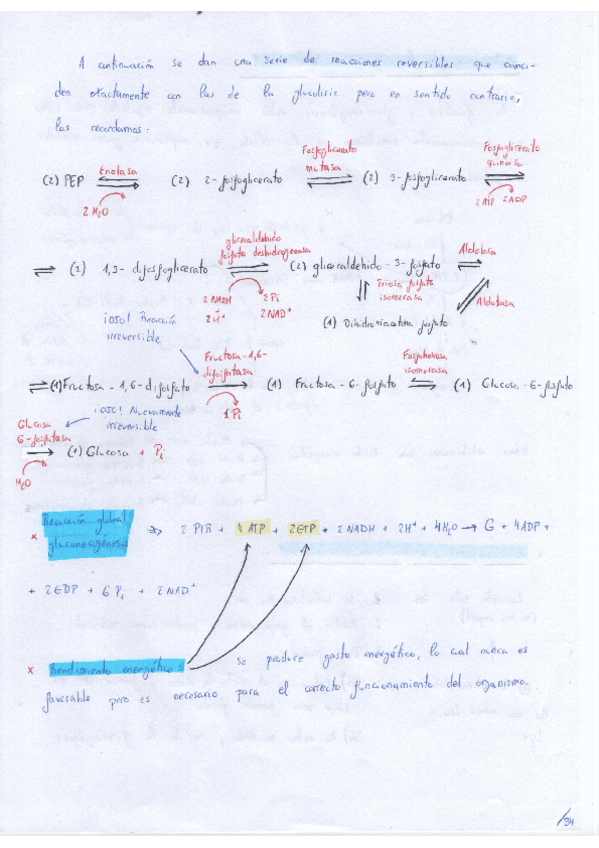 A continuación se dan una serie de reacciones reversibles que coinci-
den exactamente con las de la glucólisis pero en sentido contrario,
las recordamos:
(2) PEP ⇌ Enolasa 2 H2O (2) 2-fosfoglicerato ⇌ Fosfoglicerato mutasa (2) 3-fosfoglicerato ⇌ Fosfoglicerato quinasa 2 ATP 2 ADP
⇌ (2) 1,3-difosfoglicerato ⇌ gliceraldehido fosfato deshidrogenasa 2 NADH 2 H+ 2 Pi 2 NAD+ (2) gliceraldehido-3-fosfato ⇌ Aldolasa
Triosa fosfato isomerasa
Aldolasa
(1) Dihidroxiacetona fosfato
¡OJO! Reacción
irreversible
⇌ (1) Fructosa-1,6-difosfato → Fructosa-1,6-difosfatasa 1 Pi (1) Fructosa-6-fosfato ⇌ Fosfohexosa isomerasa (1) Glucosa-6-fosfato
¡OJO! Nuevamente
irreversible
Glucosa 6-fosfatasa H2O → (1) Glucosa + Pi
x Reacción global
gluconeogénesis => 2 PIR + 4 ATP + 2 GTP + 2 NADH + 2H+ + 4H2O → G + 4ADP +
+ 2 GDP + 6 Pi + 2 NAD+
x Rendimiento energético: se produce gasto energético, lo cual nunca es
favorable pero es necesario para el correcto funcionamiento del organismo.
/34